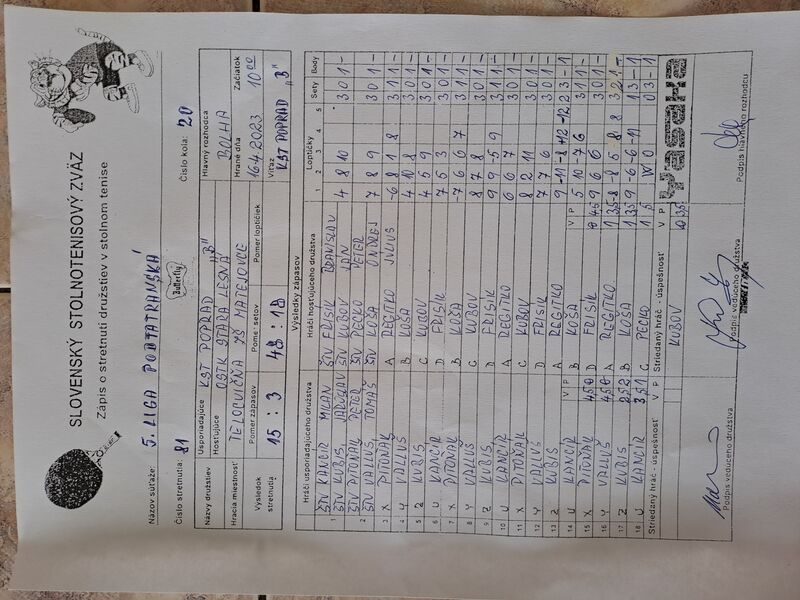 SLOVENSKÝ STOLNOTENISOVÝ ZVÄZ
Zápis o stretnutí družstiev v stolnom tenise
Butterfly
Názov súťaže: 5. LIGA PODTATRANSKÁ
Číslo stretnutia: 81 Číslo kola: 20
Názvy družstiev Usporiadajúce KST POPRAD "B" Hlavný rozhodca
Hosťujúce OSTK STARÁ LESNÁ BOLHA
Hracia miestnosť TELOCVIČŇA ZŠ MATEJOVCE Hrané dňa 16.4.2023 Začiatok 10 00
Výsledok stretnutia Pomer zápasov 15 : 3 Pomer setov 48 : 18 Pomer loptičiek Víťaz KST POPRAD "B"
Výsledky zápasov
Hráči usporiadajúceho družstva Hráči hosťujúceho družstva Loptičky Sety Body
1 2 3 4 5
ŠTV KANCÍR MILAN ŠTV FRISIK BRANISLAV
1 ŠTV KUBIS, JAROSLAV ŠTV KUBOV JÁN 4 8 10 3 0 1 -
ŠTV PITOŇÁK PETER ŠTV PECKO PETER
2 ŠTV VALLUŠ, TOMÁŠ ŠTV KOŠA ONDREJ 7 8 9 3 0 1 -
3 X PITOŇÁK A REGITKO JÚLIUS -6 8 1 8 3 1 1 -
4 Y VALLUŠ B KOŠA 4 10 8 3 0 1 -
5 Z KUBIS C KUBOV 4 5 9 3 0 1 -
6 U KANCÍR D FRISIK 7 5 3 3 0 1 -
7 X PITOŇÁK B KOŠA -7 6 6 7 3 1 1 -
8 Y VALLUŠ C KUBOV 8 7 8 3 0 1 -
9 Z KUBIS D FRISIK 9 9 -5 9 3 1 1 -
10 U KANCÍR A REGITKO 6 6 7 3 0 1 -
11 X PITOŇÁK C KUBOV 8 2 11 3 0 1 -
12 Y VALLUŠ D FRISIK 7 7 6 3 0 1 -
13 Z KUBIS A REGITKO 9 -11 -8 +12 -12 2 3 - 1
14 U KANCÍR V P B KOŠA V P 5 10 -7 6 3 1 1 -
15 X PITOŇÁK D FRISIK 9 6 6 3 0 1 -
16 Y VALLUŠ A REGITKO 3 2 1 -
17 Z KUBIS B KOŠA 9 -6 -6 -11 1 3 - 1
18 U KANCÍR C PECKO WO 0 3 - 1
Striedaný hráč - úspešnosť V P Striedaný hráč - úspešnosť V P
KUBOV
yasaka
Podpis vedúceho družstva Podpis vedúceho družstva Podpis hlavného rozhodcu